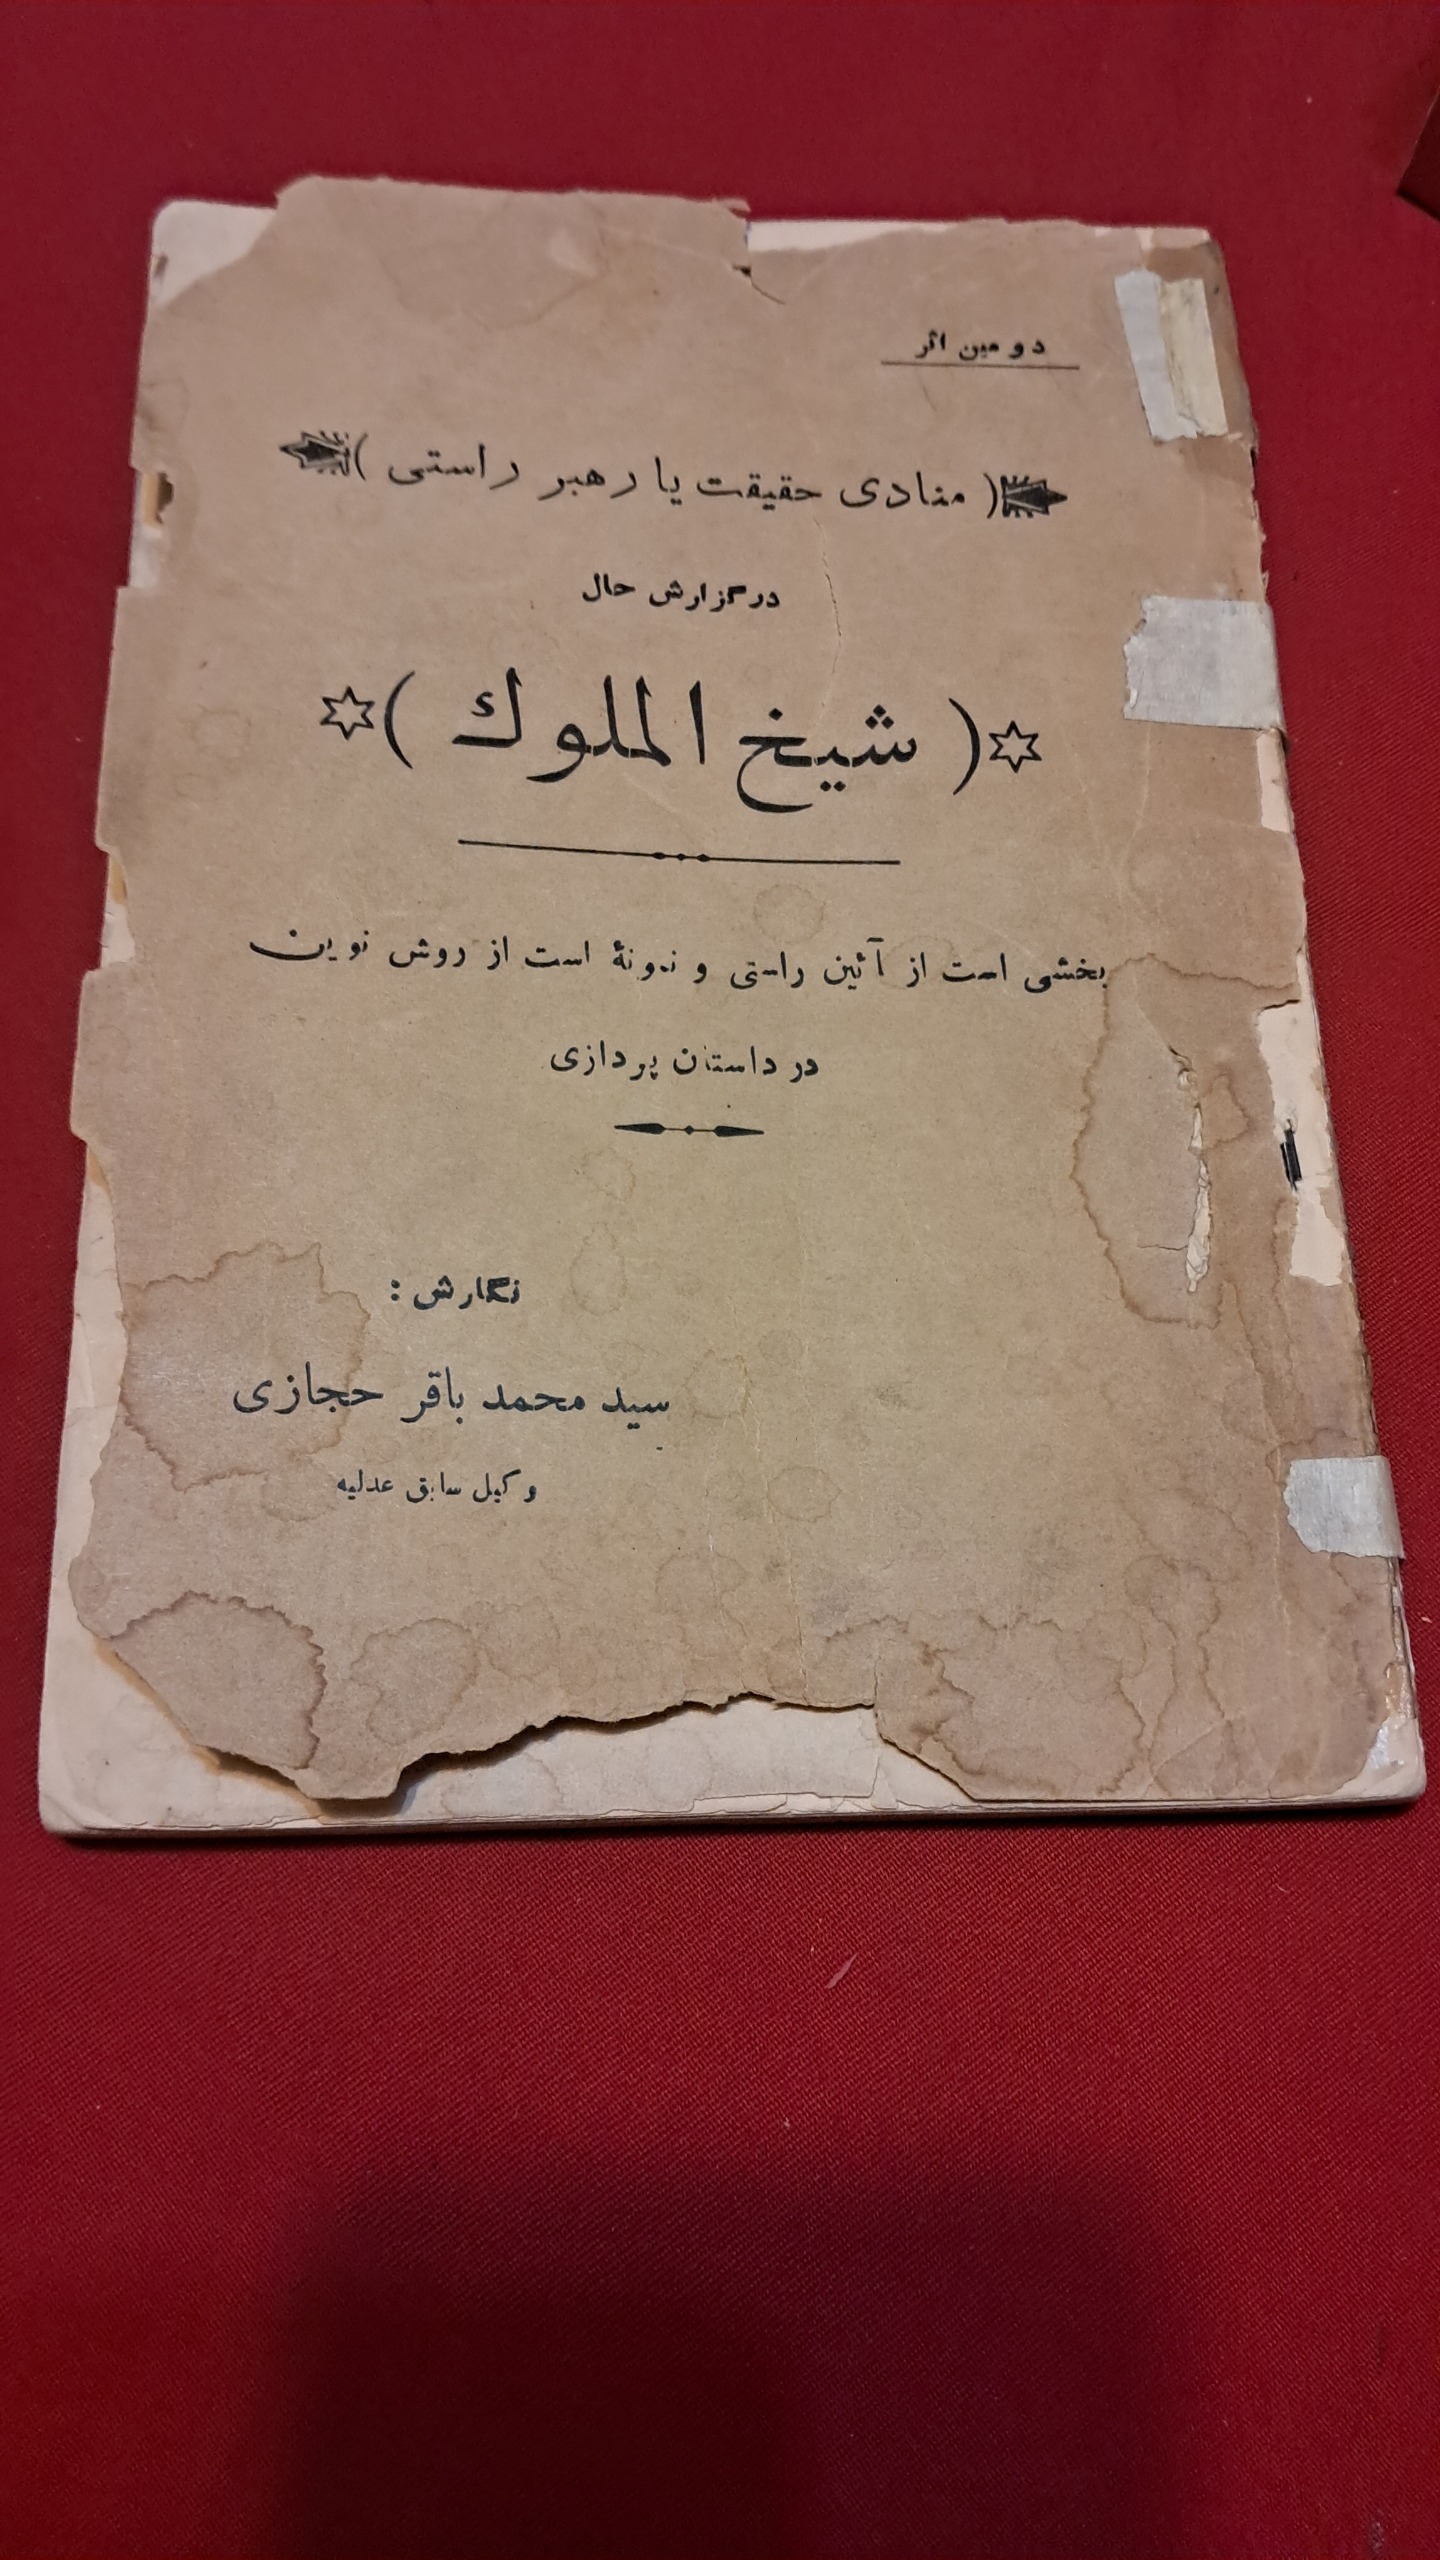 دومین اثر
( منادی حقیقت یا رهبر راستی )
در گزارش حال
( شیخ الملوك )
بخشی است از آئین راستی و نمونهٔ است از روش نوین
در داستان پردازی
نگارش :
سید محمد باقر حجازی
وکیل سابق عدلیه